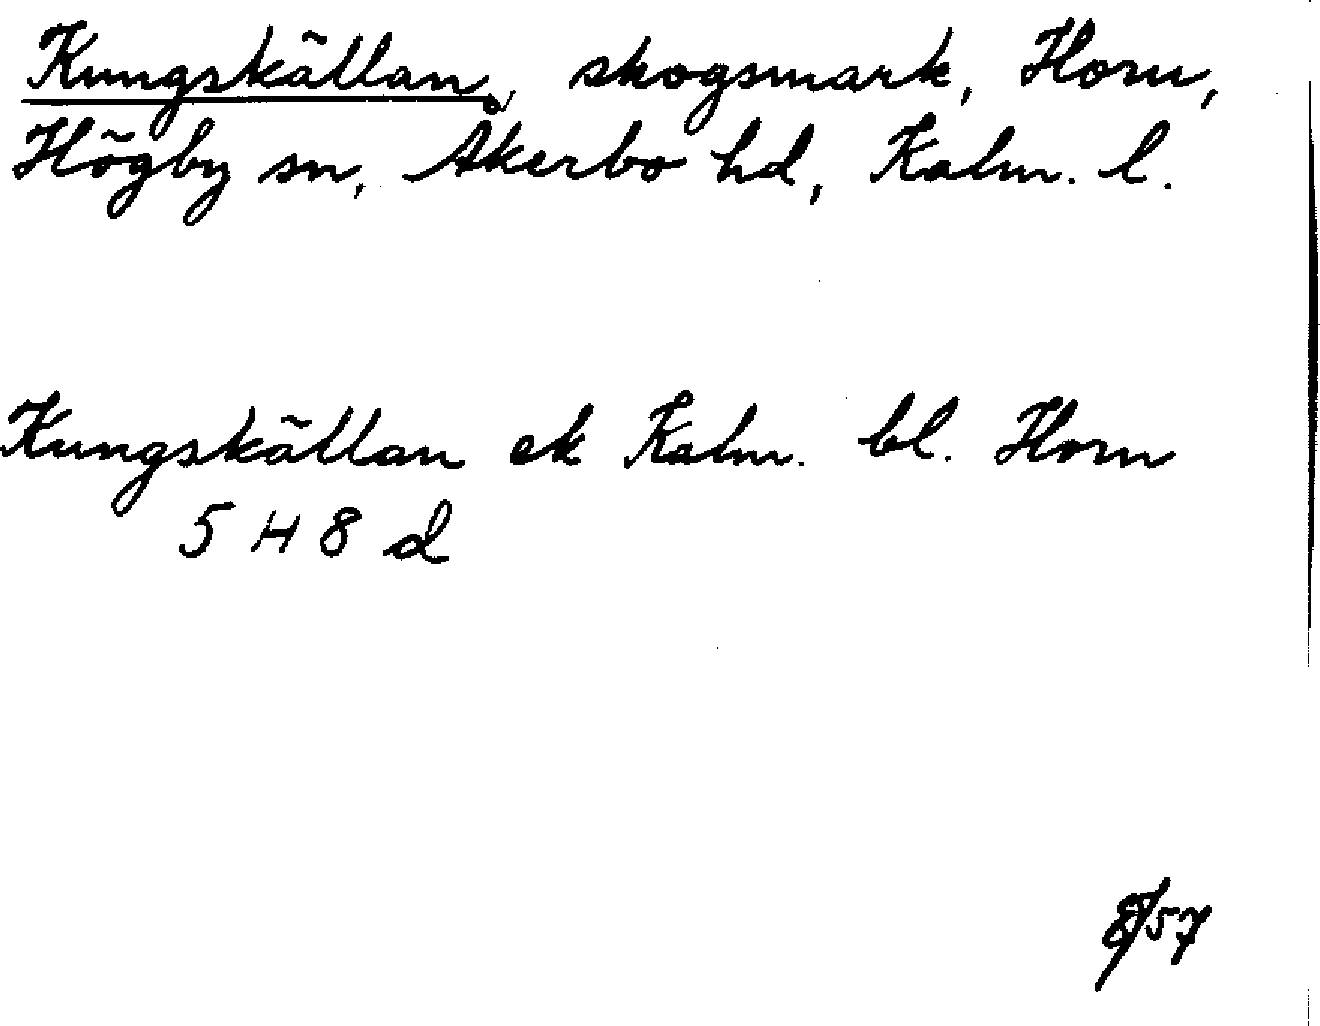 Kungskällan, skogsmark, Horn,
Högby sn, Åkerbo hd, Kalm. l.
Kungskällan ek Kalm. bl. Horn
5 H 8 d
57